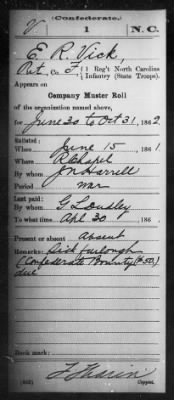 (Confederate.)
V. 1 N.C.
E. R. Vick
Pvt, Co. F, 1 Reg't North Carolina
Infantry (State Troops).
Appears on
Company Muster Roll
of the organization named above,
for June 30 to Oct 31, 1862
Enlisted:
When June 15, 1861
Where
By whom J N Harrell
Period war
Last paid:
By whom G
To what time Apl 30, 186
Present or absent Absent
Remarks: Sick furlough
Confederate Bounty ($50)
due
Book mark:
(642) Copyist.